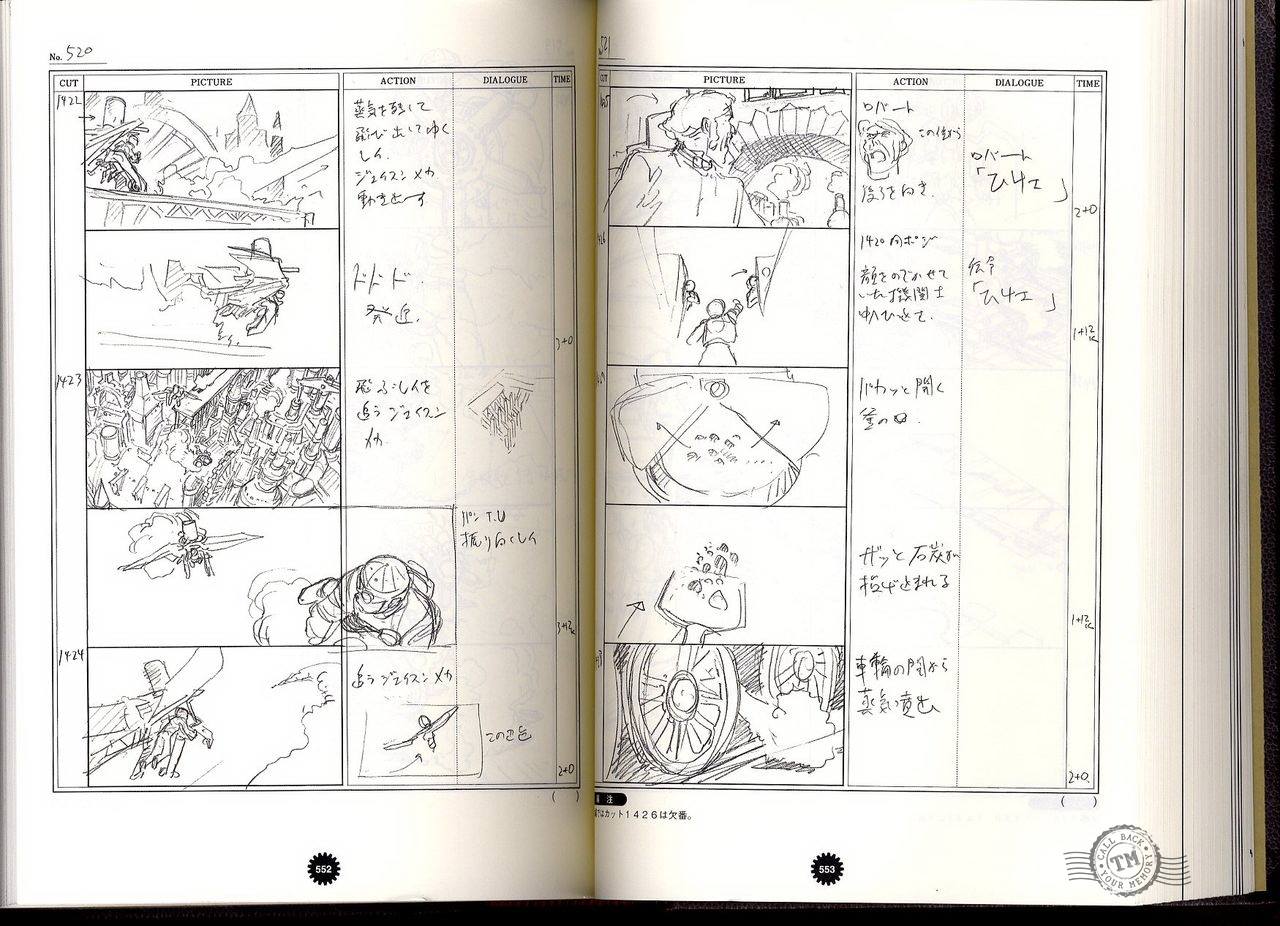 No. 520
CUT PICTURE ACTION DIALOGUE TIME
1422
蒸気を残して
飛び出してゆく
レイ.
ジェイスンメカ
動き出す
ドドド.
発進.
3+0
1423
飛ぶレイを
追うジェイスン
メカ
パン T.U
振り向くレイ
3+12
1424
追うジェイスンメカ
2+0
( )
552
521
CUT PICTURE ACTION DIALOGUE TIME
ロバート
この位から
後ろを向き.
ロバート
「ひけェ」
2+0
1420同ポジ
顔をのぞかせて
いた機関士
中へひっこむ.
伝令
「ひけェ」
1+12
パカッと開く
釜の口.
ザッと石炭が
投げ込まれる
1+12
車輪の間から
蒸気噴出
2+0.
( )
注
はカット1426は欠番。
553
CALL BACK
TM
YOUR MEMORY